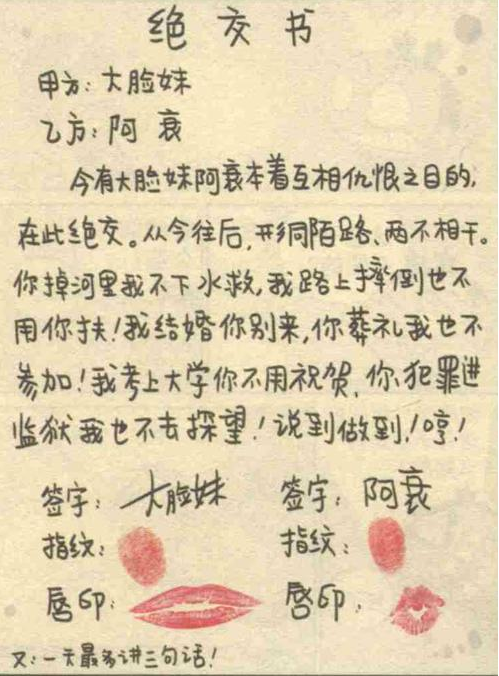 绝交书
甲方：大脸妹
乙方：阿衰
今有大脸妹阿衰本着互相仇恨之目的，
在此绝交。从今往后，形同陌路、两不相干。
你掉河里我不下水救，我路上摔倒也不
用你扶！我结婚你别来，你葬礼我也不
参加！我考上大学你不用祝贺，你犯罪进
监狱我也不去探望！说到做到！哼！
签字：大脸妹 签字：阿衰
指纹： 指纹：
唇印： 唇印：
又：一天最多讲三句话！